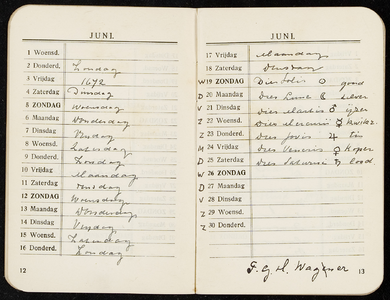 JUNI.
1 Woensd.
2 Donderd. Zondag
3 Vrijdag 1672
4 Zaterdag Dinsdag
5 ZONDAG Woensdag
6 Maandag Donderdag
7 Dinsdag Vrijdag
8 Woensd. Zaterdag
9 Donderd. Zondag
10 Vrijdag Maandag
11 Zaterdag Dinsdag
12 ZONDAG Woensdag
13 Maandag Donderdag
14 Dinsdag Vrijdag
15 Woensd. Zaterdag
16 Donderd. Zondag
12
JUNI.
17 Vrijdag Maandag
18 Zaterdag Dinsdag
W 19 ZONDAG Dies Solis ☉ goud
D 20 Maandag Dies Lunae ☾ zilver
V 21 Dinsdag Dies Martis ♂ ijzer
Z 22 Woensd. Dies Mercurii ☿ kwikz.
Z 23 Donderd. Dies Jovis ♃ tin
M 24 Vrijdag Dies Veneris ♀ koper
D 25 Zaterdag Dies Saturni ♄ lood
W 26 ZONDAG
D 27 Maandag
V 28 Dinsdag
Z 29 Woensd.
Z 30 Donderd.
F. G. H. Wagener
13